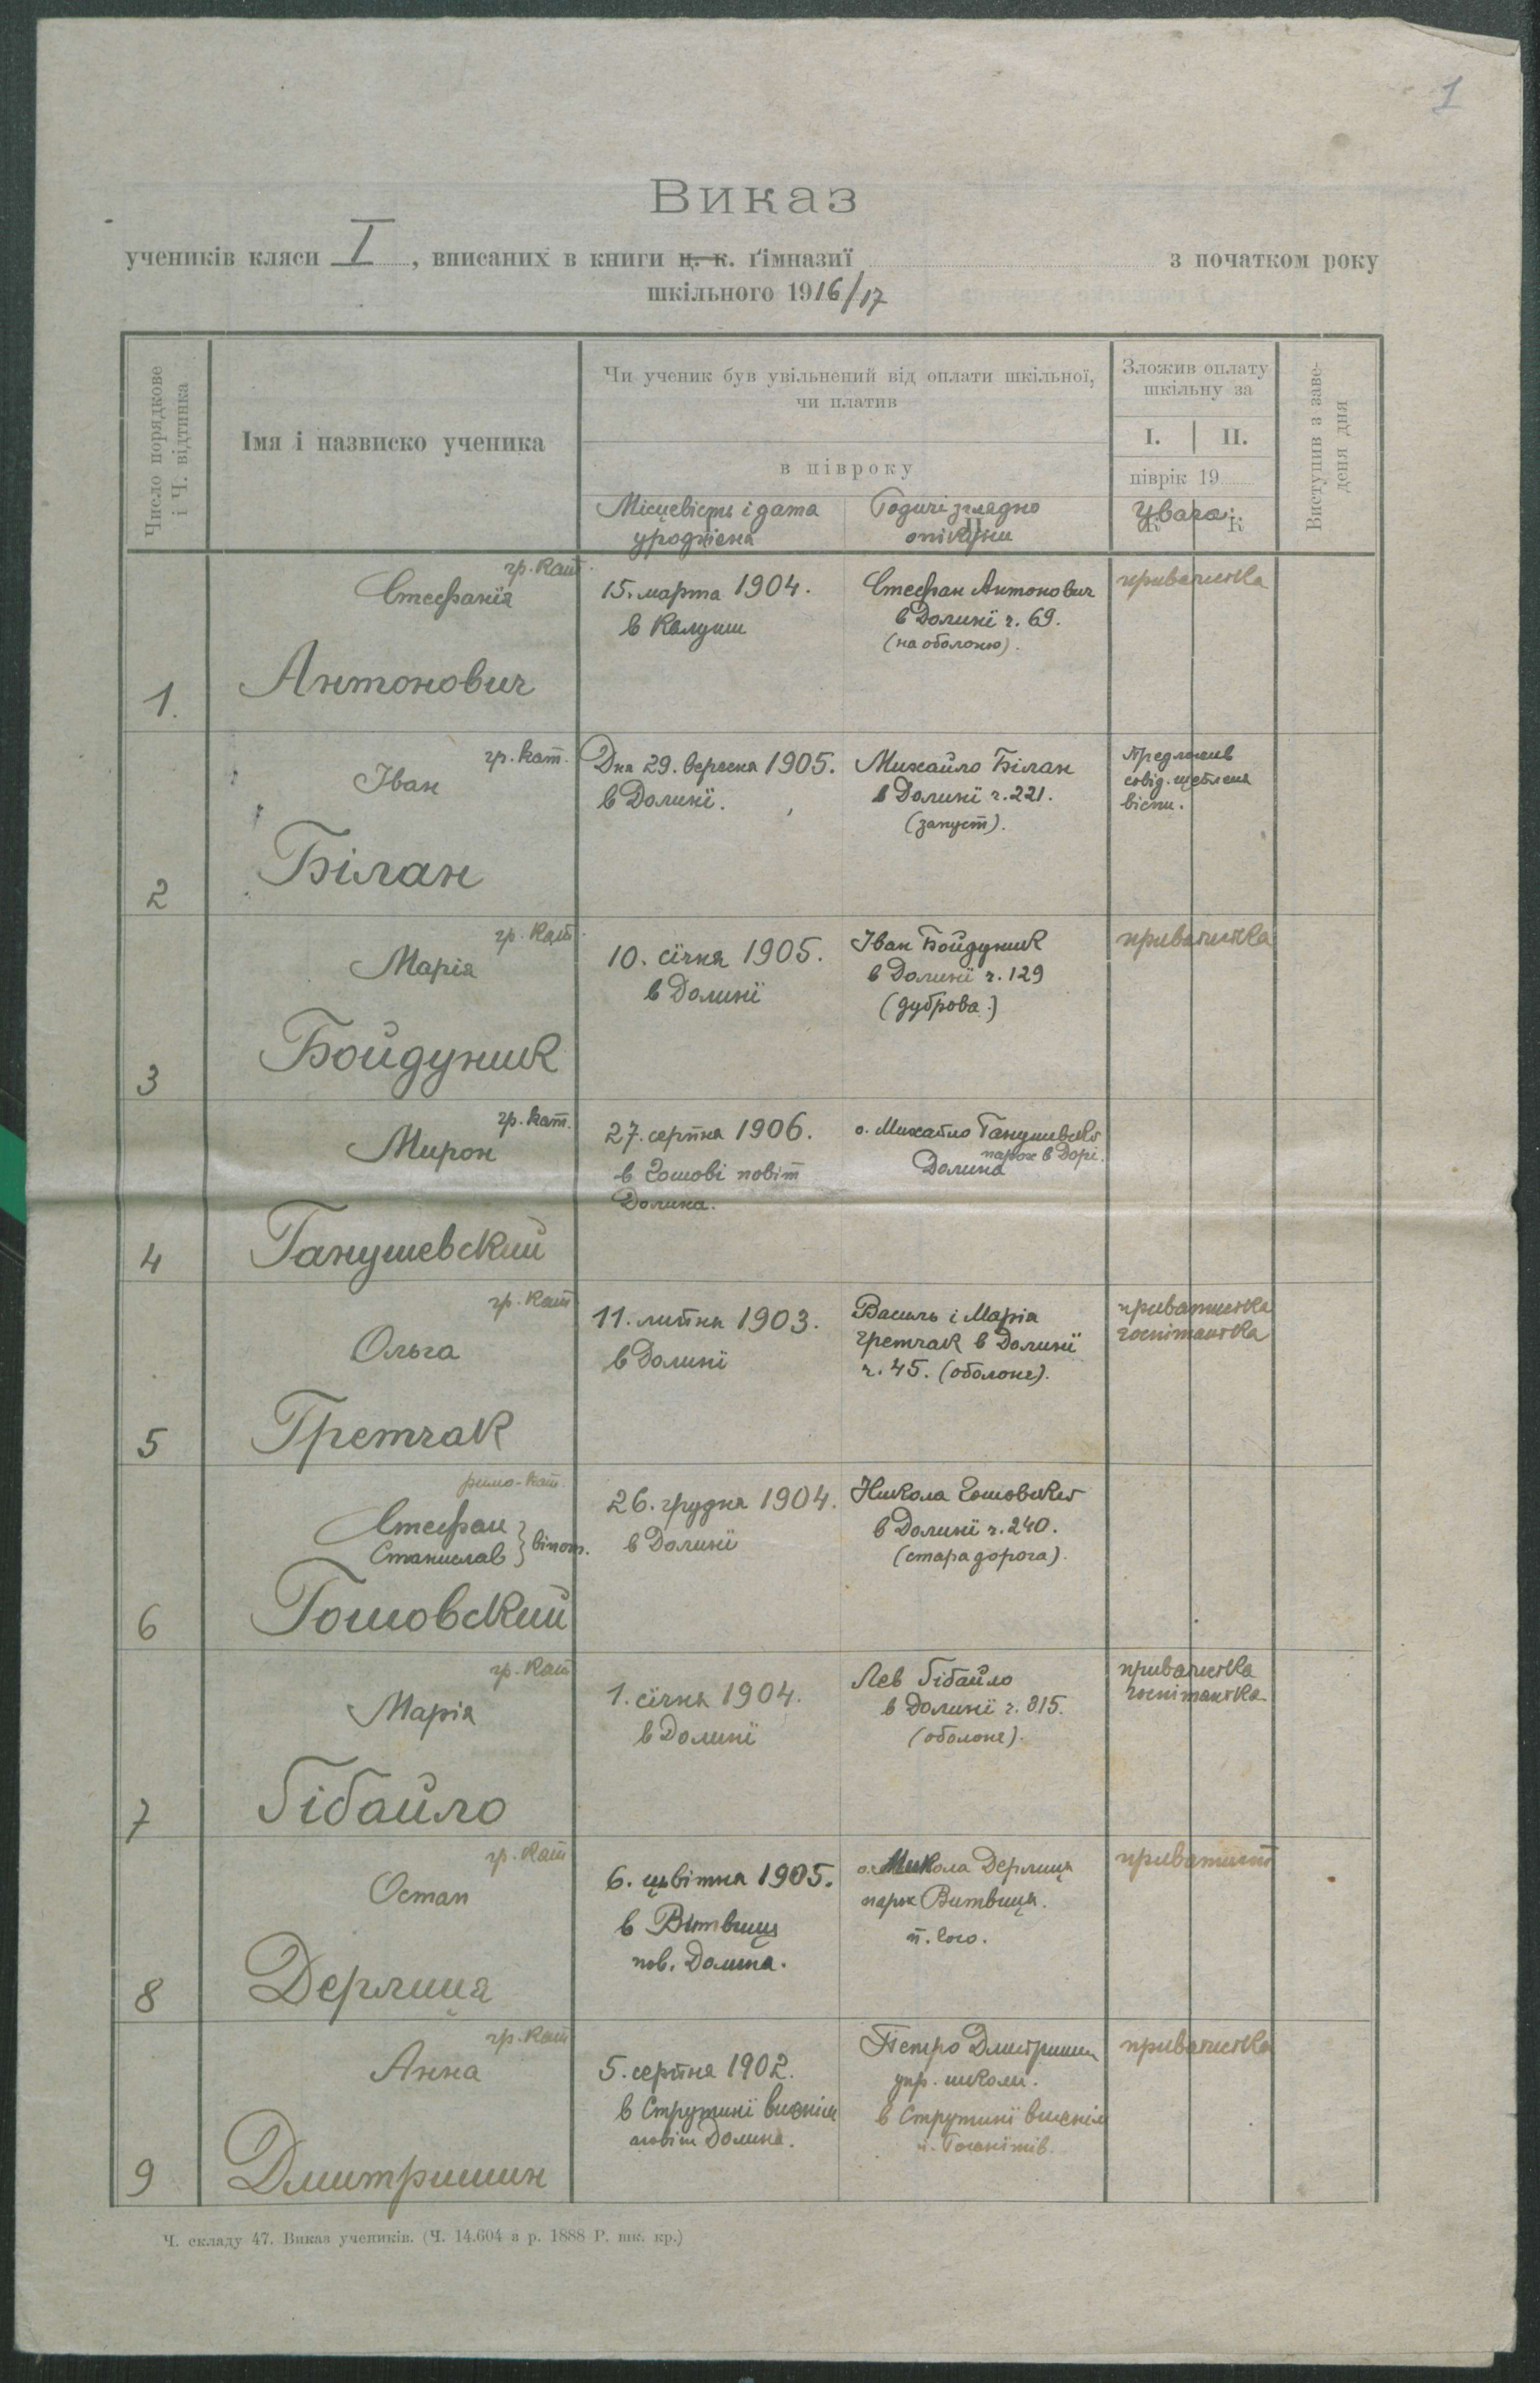 1
Виказ
учеників кляси I, вписаних в книги ц. к. ґімназиї з початком року
шкільного 1916/17
Число порядкове
і Ч. відтинка
Імя і назвиско ученика
Чи ученик був увільнений від оплати шкільної,
чи платив
в півроку
Місцевість і дата
уродженя
Родичі зглядно
опікуни
Зложив оплату
шкільну за
I. II.
піврік 19
Увага:
Виступив з заве-
деня дня
1.
гр. кат.
Стефанія
Антонович
15. марта 1904.
в Калуши
Стефан Антонович
в Долинї ч. 69.
(на оболоню).
приватистка
2
гр. кат.
Іван
Білан
Дня 29. вересня 1905.
в Долинї.
Михайло Білан
в Долинї ч. 221.
(запуст).
Предложив
свід. щепленя
віспи.
3
гр. кат.
Марія
Бойдуник
10. сїчня 1905.
в Долинї
Іван Бойдуник
в Долинї ч. 129
(дуброва.)
приватистка
4
гр. кат.
Мирон
Ганушевский
27. серпня 1906.
в Гошові повіт
Долина.
о. Михайло Ганушевскі
парох в Дорі.
Долина
5
гр. кат
Ольга
Гретчак
11. липня 1903.
в Долинї
Василь і Марія
Гретчак в Долинї
ч. 45. (оболоне).
приватистка
госпітантка
6
римо-кат.
Стефан
Станислав } віпот.
Гошовский
26. грудня 1904.
в Долинї
Никола Гошовскі
в Долинї ч. 240.
(стара дорога).
7
гр. кат
Марія
Ґібайло
1. сїчня 1904.
в Долинї
Лев Ґібайло
в Долинї ч. 315.
(оболоне).
приватистка
госпітантка
8
гр. кат
Остап
Дерлиця
6. цьвітня 1905.
в Витвици
пов. Долина.
о. Микола Дерлиця
парох Витвиця.
п. loco.
приватист
9
гр. кат
Анна
Дмитришин
5. серпня 1902.
в Струтинї висшім
повіт Долина.
Петро Дмитришин
упр. школи.
в Струтинї висшім
п. Рожнїтів.
приватистка
Ч. складу 47. Виказ учеників. (Ч. 14.604 з р. 1888 Р. шк. кр.)